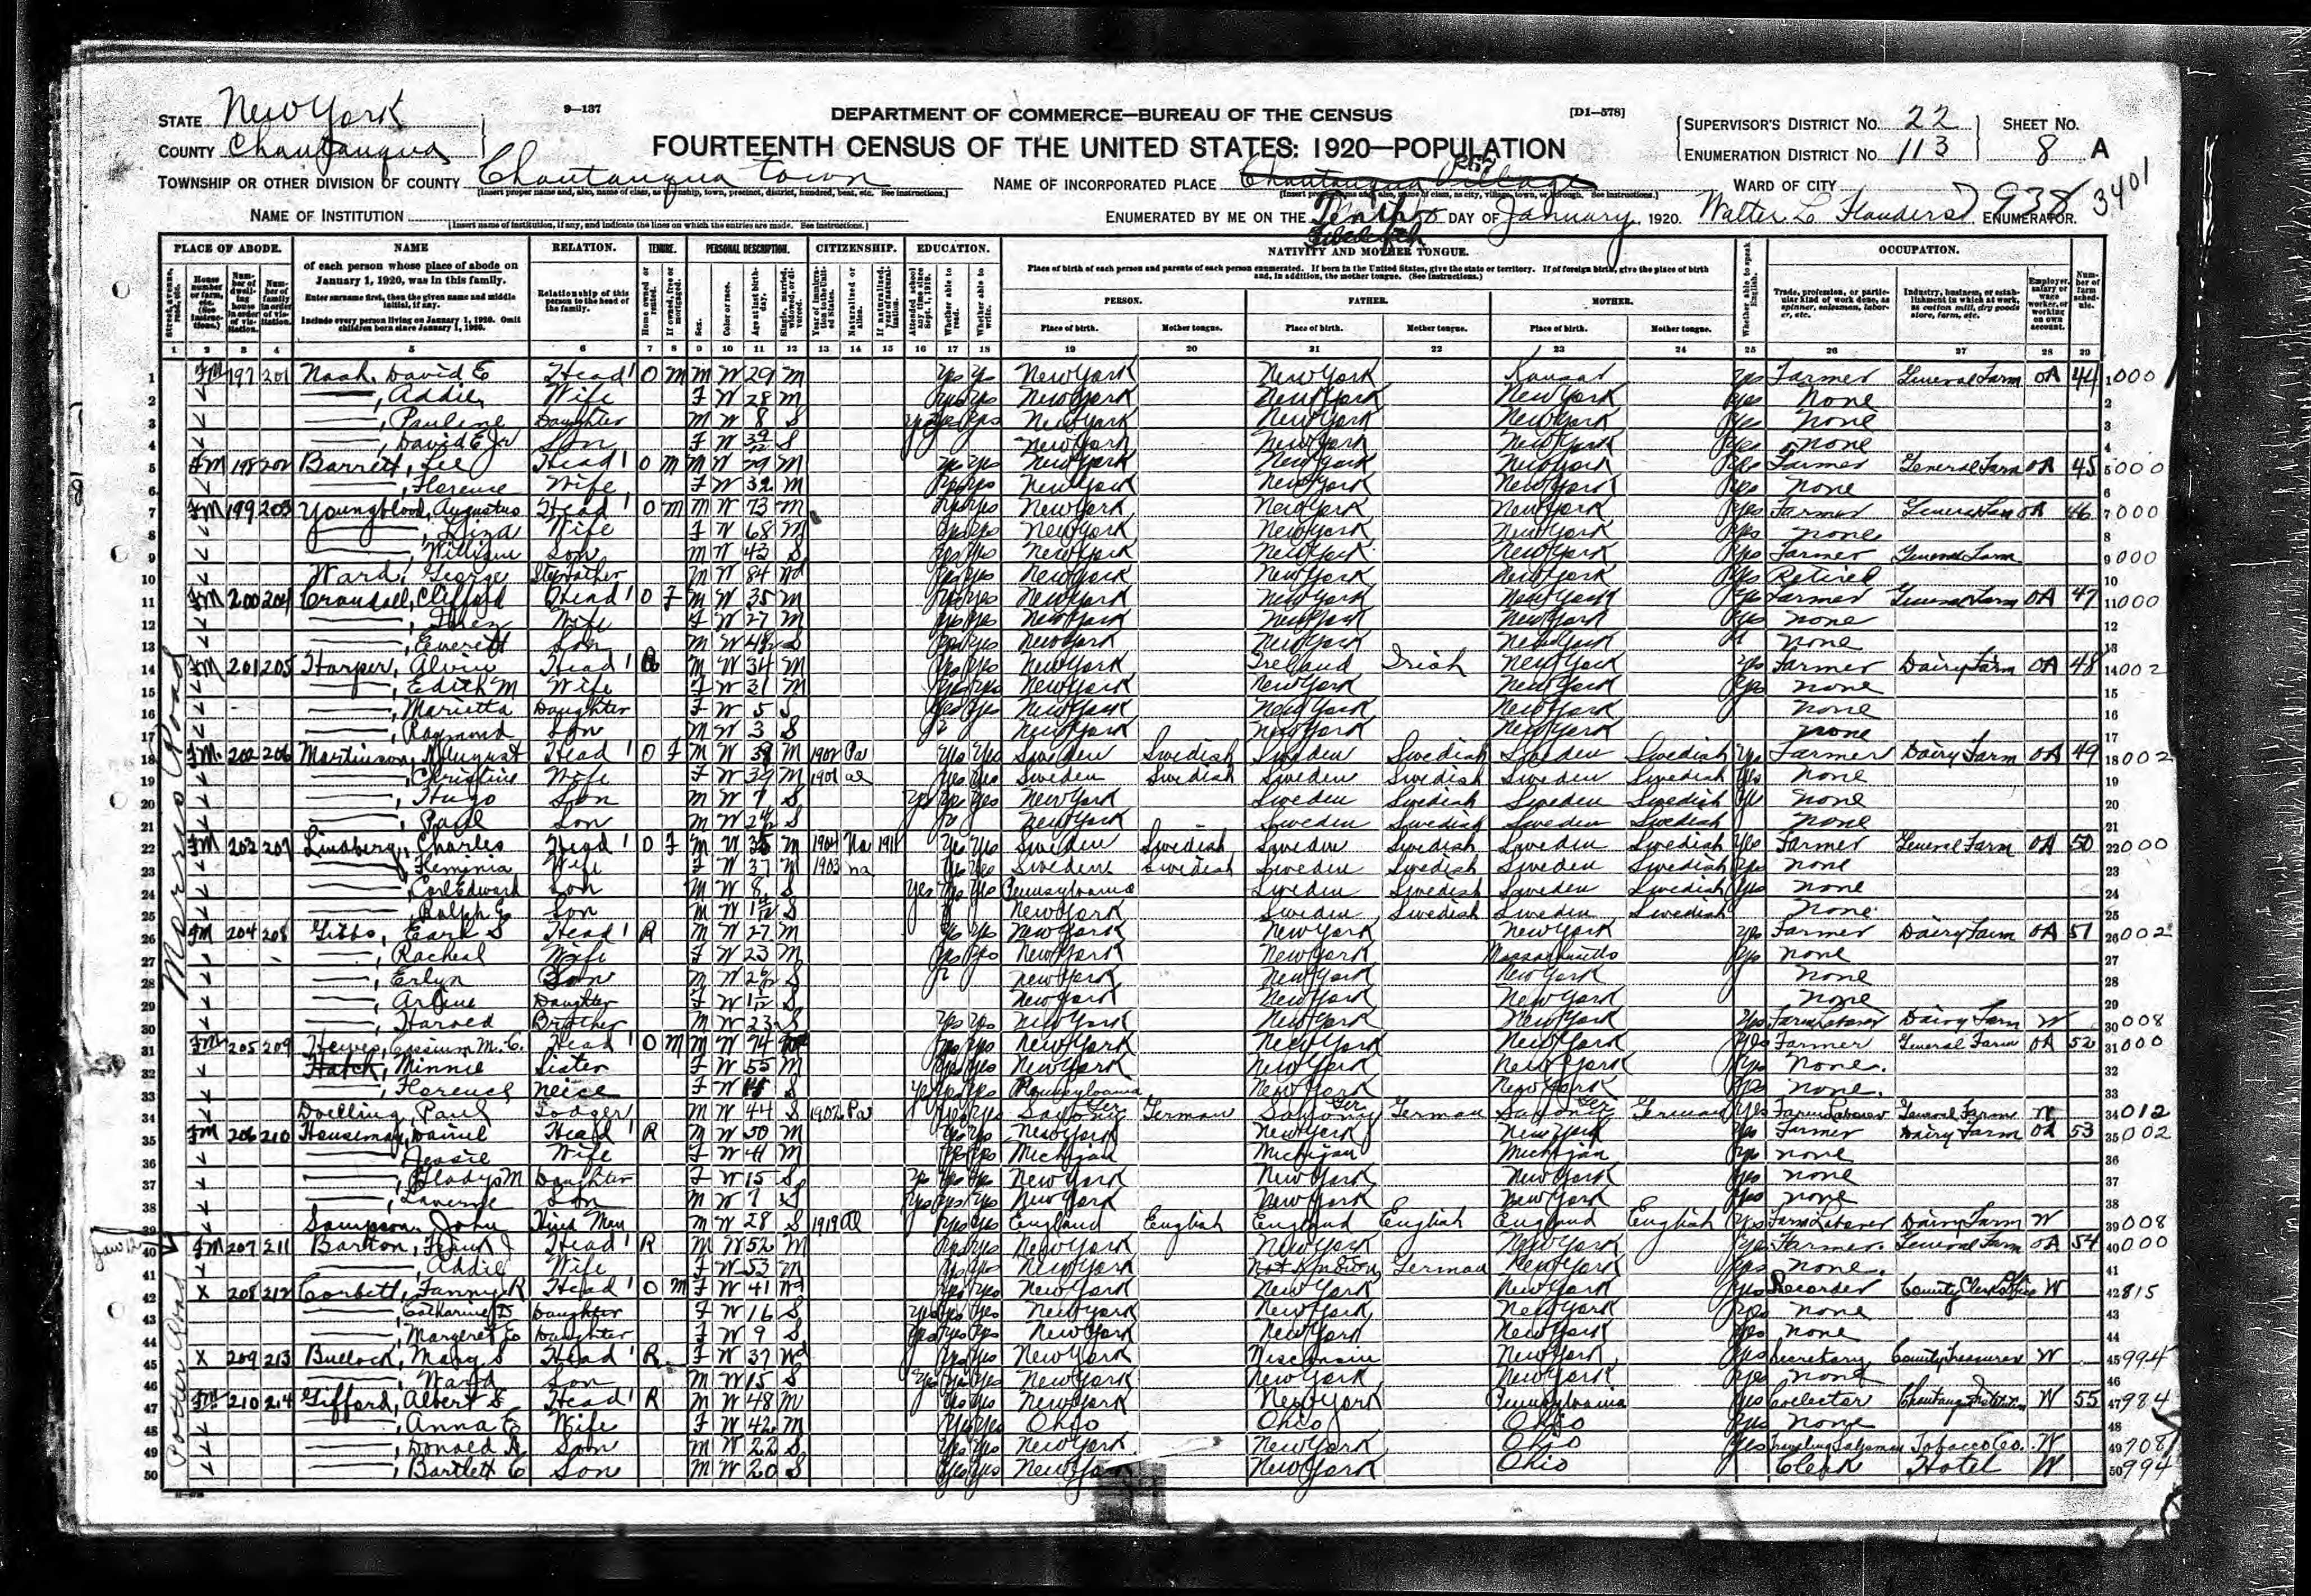 9—137 DEPARTMENT OF COMMERCE—BUREAU OF THE CENSUS [D1—578]
STATE New York
COUNTY Chautauqua
FOURTEENTH CENSUS OF THE UNITED STATES: 1920—POPULATION
SUPERVISOR'S DISTRICT No. 22 SHEET No.
ENUMERATION DISTRICT No. 113 8 A
3401
TOWNSHIP OR OTHER DIVISION OF COUNTY Chautauqua town NAME OF INCORPORATED PLACE Chautauqua Village WARD OF CITY
NAME OF INSTITUTION ENUMERATED BY ME ON THE Tenth DAY OF January, 1920. Walter L Flanders ENUMERATOR. 938
PLACE OF ABODE. NAME RELATION. TENURE. PERSONAL DESCRIPTION. CITIZENSHIP. EDUCATION. NATIVITY AND MOTHER TONGUE. OCCUPATION.
of each person whose place of abode on January 1, 1920, was in this family.
Enter surname first, then the given name and middle initial, if any.
Include every person living on January 1, 1920. Omit children born since January 1, 1920.
Relationship of this person to the head of the family.
Place of birth of each person and parents of each person enumerated. If born in the United States, give the state or territory. If of foreign birth, give the place of birth and, in addition, the mother tongue. (See Instructions.)
PERSON. FATHER. MOTHER.
Place of birth. Mother tongue. Place of birth. Mother tongue. Place of birth. Mother tongue.
1 2 3 4 5 6 7 8 9 10 11 12 13 14 15 16 17 18 19 20 21 22 23 24 25 26 27 28 29
1 FM 197 201 Nash, David E Head 1 O M M W 29 M Yes Yes New York New York Kansas Yes Farmer General Farm OA 44 1 000
2 ———, Addie Wife F W 28 M Yes Yes New York New York New York Yes None 2
3 ———, Pauline Daughter M W 8 S Yes Yes Yes New York New York New York Yes None 3
4 ———, David E Jr Son F W S New York New York New York Yes None 4
5 FM 198 202 Barrett, Lee Head 1 O M M W 29 M Yes Yes New York New York New York Yes Farmer General Farm OA 45 5 000
6 ———, Florence Wife F W 32 M Yes Yes New York New York New York Yes None 6
7 FM 199 203 Youngblood, Augustus Head 1 O M M W 73 M Yes Yes New York New York New York Yes Farmer General Farm OA 46 7 000
8 ———, Liza Wife F W 68 M Yes Yes New York New York New York Yes None 8
9 ———, William Son M W 43 S Yes Yes New York New York New York Yes Farmer General Farm 9 000
10 Ward, George Stepfather M W 84 Wd Yes Yes New York New York New York Yes Retired 10
11 FM 200 204 Crandall, Clifford Head 1 O F M W 35 M Yes Yes New York New York New York Yes Farmer General Farm OA 47 11 000
12 ———, Inez Wife F W 27 M Yes Yes New York New York New York Yes None 12
13 ———, Everett Son M W S New York New York New York None 13
14 FM 201 205 Harper, Alvin Head 1 R M W 34 M Yes Yes New York Ireland Irish New York Yes Farmer Dairy Farm OA 48 14 002
15 ———, Edith M Wife F W 31 M Yes Yes New York New York New York Yes None 15
16 ———, Marietta Daughter F W 5 S Yes Yes New York New York New York None 16
17 ———, Raymond Son M W 3 S New York New York New York None 17
18 FM 202 206 Martinson, August Head 1 O F M W 39 M 1902 Pa Yes Yes Sweden Swedish Sweden Swedish Sweden Swedish Yes Farmer Dairy Farm OA 49 18 002
19 ———, Christine Wife F W 39 M 1901 al Yes Yes Sweden Swedish Sweden Swedish Sweden Swedish Yes None 19
20 ———, Hugo Son M W 7 S Yes Yes Yes New York Sweden Swedish Sweden Swedish Yes None 20
21 ———, Paul Son M W S New York Sweden Swedish Sweden Swedish None 21
22 FM 203 207 Lindberg, Charles Head 1 O F M W 35 M 1904 Na 1911 Yes Yes Sweden Swedish Sweden Swedish Sweden Swedish Yes Farmer General Farm OA 50 22 000
23 ———, Heminia Wife F W 37 M 1903 na Yes Yes Sweden Swedish Sweden Swedish Sweden Swedish Yes None 23
24 ———, Carl Edward Son M W 8 S Yes Yes Yes Pennsylvania Sweden Swedish Sweden Swedish Yes None 24
25 ———, Ralph E Son M W S New York Sweden Swedish Sweden Swedish None 25
26 FM 204 208 Gibbs, Earl S Head 1 R M W 27 M Yes Yes New York New York New York Yes Farmer Dairy Farm OA 51 26 002
27 ———, Racheal Wife F W 23 M Yes Yes New York New York Massachusetts Yes None 27
28 ———, Erlyn Son M W S New York New York New York None 28
29 ———, Arline Daughter F W S New York New York New York None 29
30 ———, Harold Brother M W 23 S Yes Yes New York New York New York Yes Farm Laborer Dairy Farm W 30 008
31 FM 205 209 Hewes, M. C. Head 1 O M M W 74 Yes Yes New York New York New York Yes Farmer General Farm OA 52 31 000
32 Hatch, Minnie Sister F W 55 M Yes Yes New York New York New York Yes None. 32
33 ———, Florence Neice F W S Yes Yes Yes Pennsylvania New York New York Yes None. 33
34 Doelling, Paul Lodger M W 44 S 1902 Pa Yes Yes Saxony Ger German Saxony Ger German Saxony Ger German Yes Farm Laborer General Farm W 34 012
35 FM 206 210 Houseman, Daniel Head 1 R M W 50 M Yes Yes New York New York New York Yes Farmer Dairy Farm OA 53 35 002
36 ———, Jessie Wife F W 41 M Yes Yes Michigan Michigan Michigan Yes None 36
37 ———, Gladys M Daughter F W 15 S Yes Yes Yes New York New York New York Yes None 37
38 ———, Laverne Son M W 7 S Yes Yes Yes New York New York New York Yes None 38
39 Sampson, John Hired Man M W 28 S 1919 Al Yes Yes England English England English England English Yes Farm Laborer Dairy Farm W 39 008
40 FM 207 211 Barton, Frank J Head 1 R M W 52 M Yes Yes New York New York New York Yes Farmer. General Farm OA 54 40 000
41 ———, Addie Wife F W 53 M Yes Yes New York Not Known German New York Yes None. 41
42 X 208 212 Corbett, Fanny R Head 1 O M F W 41 Wd Yes Yes New York New York New York Yes Recorder County Clerk Office W 42 815
43 ———, Catharine D Daughter F W 16 S Yes Yes Yes New York New York New York Yes None 43
44 ———, Margeret E Daughter F W 9 S Yes Yes Yes New York New York New York Yes None 44
45 X 209 213 Bullock, Mary S Head 1 R F W 37 Wd Yes Yes New York Wisconsin New York Yes Secretary County Treasurer W 45 994
46 ———, Ward Son M W 15 S Yes Yes Yes New York New York New York Yes None 46
47 FM 210 214 Gifford, Albert S Head 1 R M W 48 M Yes Yes New York New York Pennsylvania Yes Collector Chautauqua Institution W 55 47 984
48 ———, Anna E Wife F W 42 M Yes Yes Ohio Ohio Ohio Yes None 48
49 ———, Donald A Son M W 22 S Yes Yes New York New York Ohio Yes Traveling Salesman Tobacco Co. W 49 708
50 ———, Bartlett C Son M W 20 S Yes Yes New York New York Ohio Clerk Hotel W 50 994
Morris Road
Potter Road